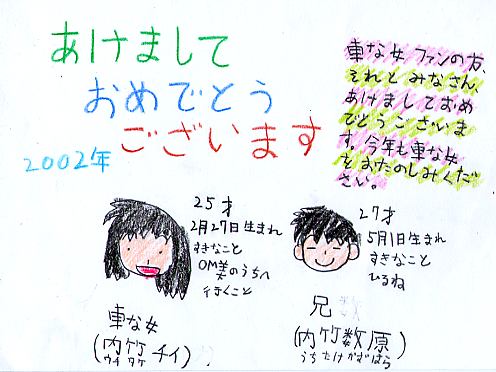 あけまして
おめでとう
ございます
2002年
車な女 ファンの方、
それと みなさん、
あけまして おめ
でとう ございま
す。今年も車な女
を またのしみくだ
さい。
25才
2月27日生まれ
すきなこと
OM美のうちへ
行くこと
車な女
(内竹 チイ)
ウチ タケ
27才
5月1日生まれ
すきなこと
ひるね
兄 数
(内竹数原)
うちたけかずはら